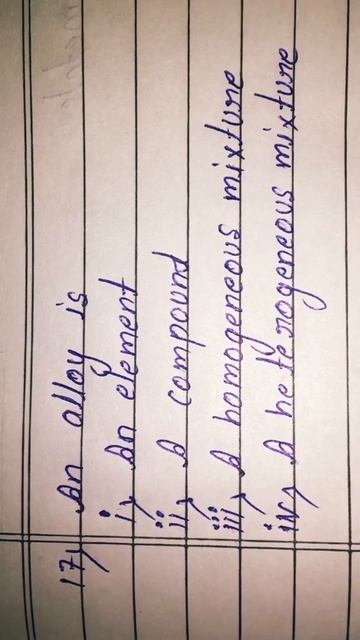 17) An alloy is
i) An element
ii) A compound
iii) A homogeneous mixture
iv) A heterogeneous mixture